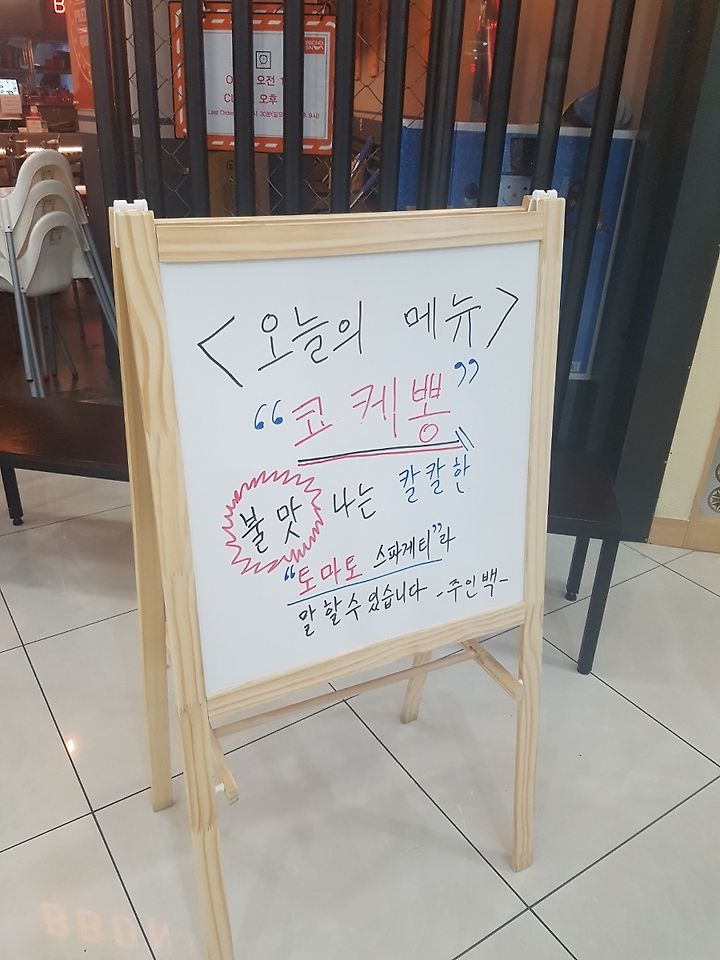 <오늘의 메뉴>
“코케뽕”
불맛 나는 칼칼한
“토마토 스파게티”라
말 할 수 있습니다 -주인백-
오전
오후
Last Order
B
BBON